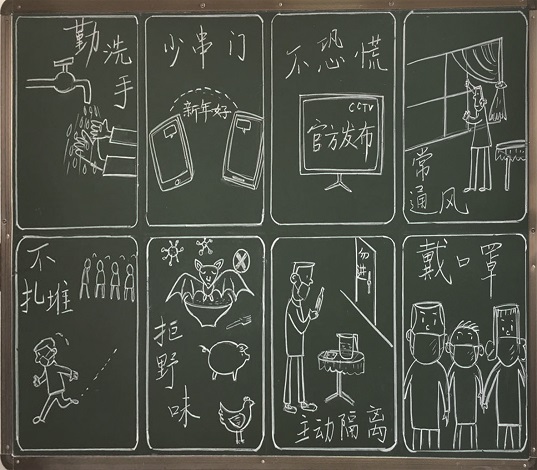 勤洗手
少串门
新年好
不恐慌
CCTV
官方发布
常通风
不扎堆
拒野味
勿进!
主动隔离
戴口罩